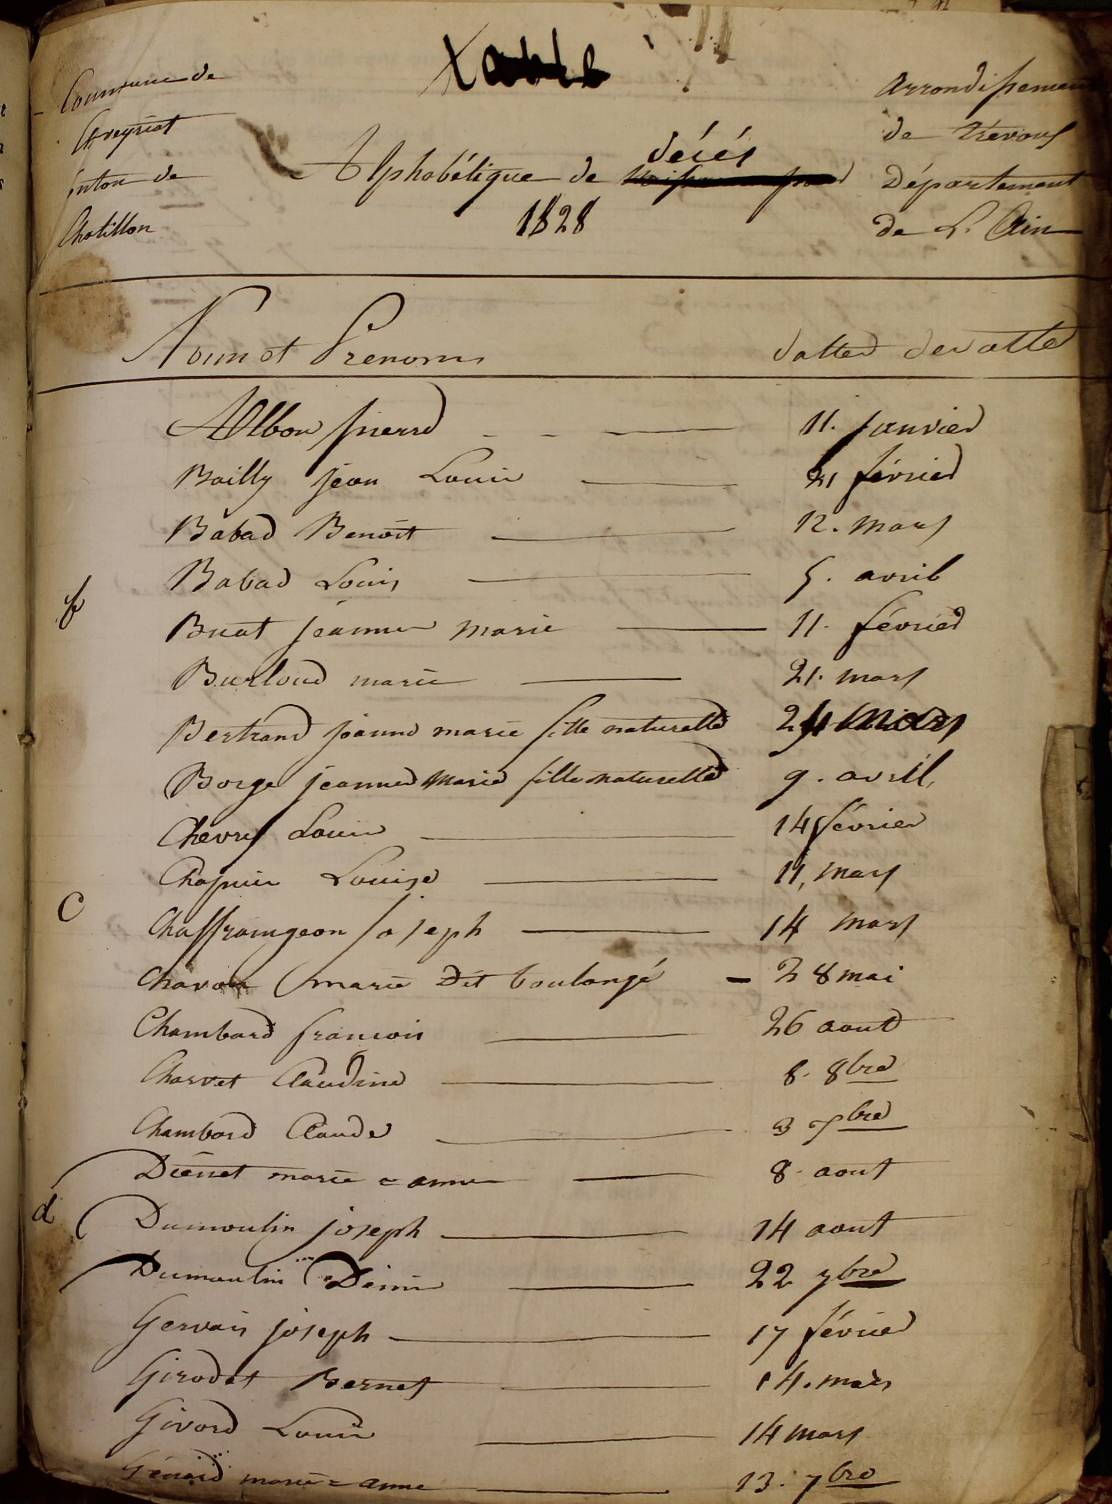 Table
Commune de
Chaveyriat
Canton de
Chatillon
Alphabétique de décés
1828
Arrondissement
de Trévoux
Département
de L'Ain
Noms et Prenoms
dattes des actes
Albon pierre 11. janvier
Bailly jean Louis 21 février
Babad Benoît 12. mars
Babad Louis 5. avril
b
Buat jeanne marie 11. février
Burloud marie 21. mars
Bertrand jeanne marie fille naturelle 24 mars
Borge jeanne marie fille naturelle 9. avril
Chevres Louis 14 février
Louise 11, mars
C
Chaffraingeon joseph 14 mars
marie Dit boulangé 28 mai
Chambard francois 26 aout
Charvet Claudine 8. 8bre
Chambard Claude 3 7bre
marie = anne 8. aout
d
Dumoulin joseph 14 aout
Dumoulin Dénis 22 7bre
Gervais joseph 17 février
Girodet 14. mars
Givord Louis 14 mars
Génard marie = anne 13. 7bre